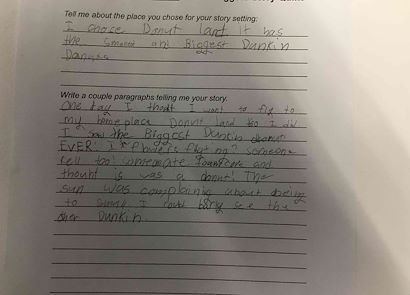 Tell me about the place you chose for your story setting:
I chose Donut land. It has
the Smallest and Biggest Dunkin
Write a couple paragraphs telling me your story.
One day I I want to fly to
my home place Donut land so I did
I saw the Biggest Dunkin donut
EVER! I someone
too someone ate and
thouht is was a donut! The
sun was complaning about being
to sunny. I could bary see the
other Dunkin.